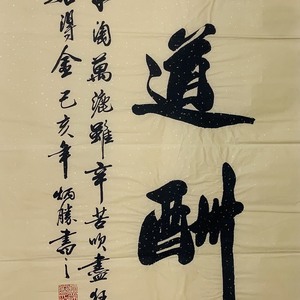 道酬
千淘萬漉雖辛苦吹盡狂
始得金己亥年炳勝書之